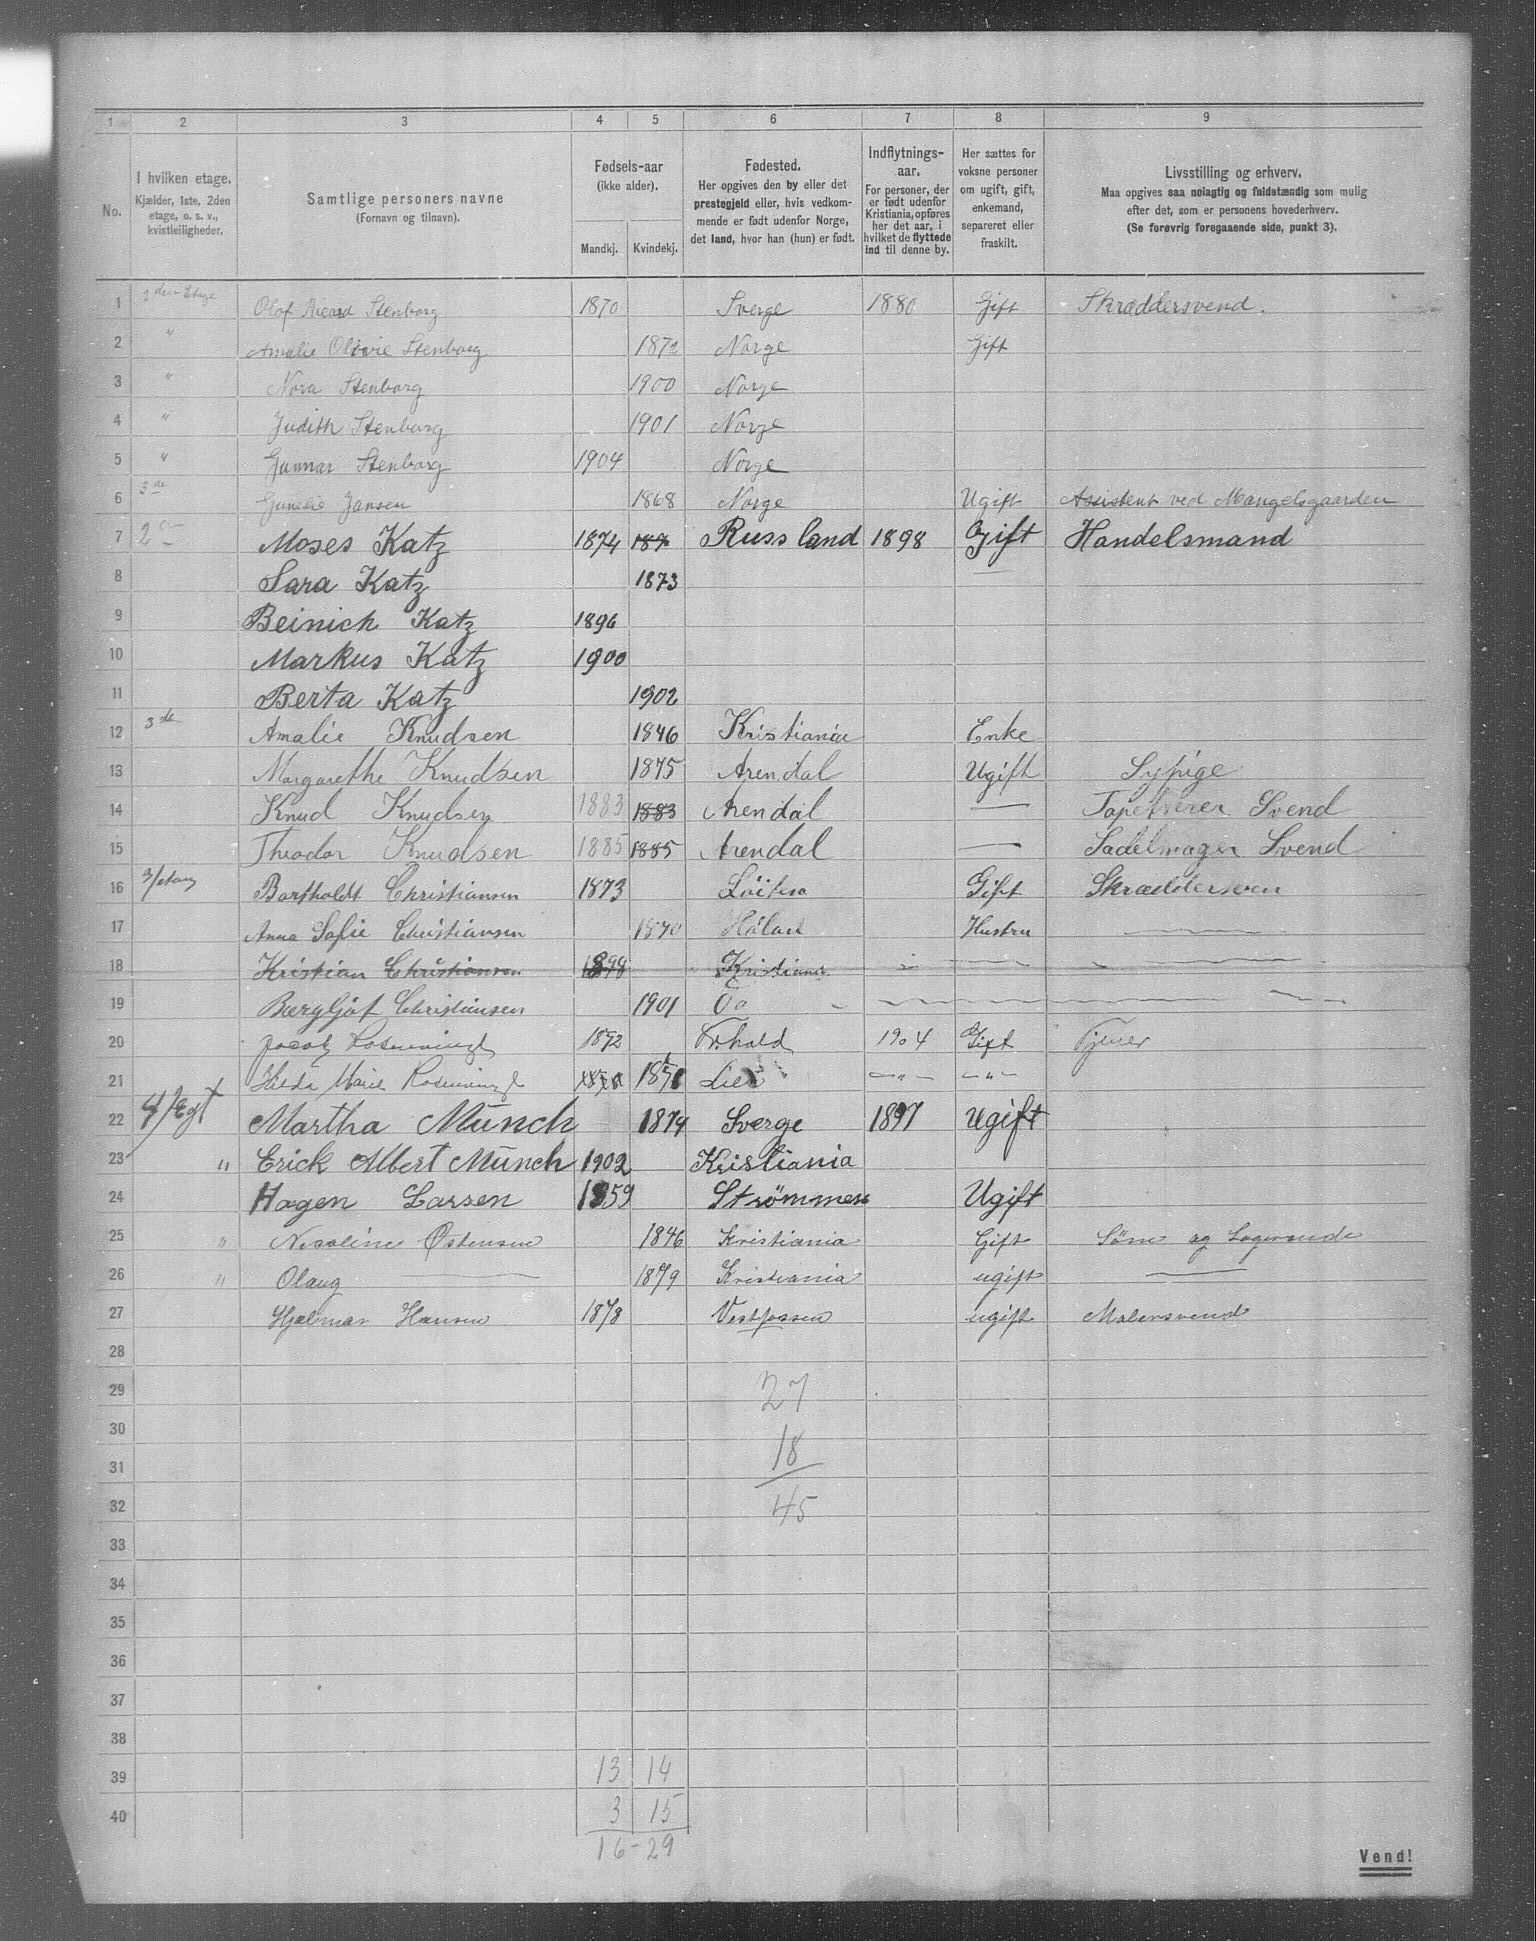 1 2 3 4 5 6 7 8 9
No.
I hvilken etage.
Kjælder, 1ste, 2den
etage, o. s. v.,
kvistleiligheder.
Samtlige personers navne
(Fornavn og tilnavn).
Fødsels-aar
(ikke alder).
Mandkj. Kvindekj.
Fødested.
Her opgives den by eller det
prestegjeld eller, hvis vedkom-
mende er født udenfor Norge,
det land, hvor han (hun) er født.
Indflytnings-
aar.
For personer, der
er født udenfor
Kristiania, opføres
her det aar, i
hvilket de flyttede
ind til denne by.
Her sættes for
voksne personer
om ugift, gift,
enkemand,
separeret eller
fraskilt.
Livsstilling og erhverv.
Maa opgives saa nøiagtig og fuldstændig som mulig
efter det, som er personens hovederhverv.
(Se forøvrig foregaaende side, punkt 3).
1 2den Etage Olof Ricard Stenborg 1870 Sverge 1880 Gift Skræddersvend.
2 " Amalie Olivie Stenborg 1872 Norge Gift
3 " Nora Stenborg 1900 Norge
4 " Judith Stenborg 1901 Norge
5 " Gunnar Stenborg 1904 Norge
6 3de Gunelie Jansen 1868 Norge Ugift Assistent ved Mangelsgaarden
7 2 Moses Katz 1874 187 Russland 1898 Gift Handelsmand
8 Sara Katz 1873 —
9 Beinich Katz 1896
10 Markus Katz 1900
11 Berta Katz 1902
12 3de Amalie Knudsen 1846 Kristiania Enke
13 Margarethe Knudsen 1875 Arendal Ugift Sypige
14 Knud Knudsen 1883 1883 Arendal — Tapetserer Svend
15 Theodor Knudsen 1885 1885 Arendal — Sadelmager Svend
16 3/etag Bartholdt Christiansen 1873 Löiten Gift Skræddersven
17 Anna Sofie Christiansen 1870 Höland Hustru —
18 Kristian Christiansen 1898 Kristiania
19 Bergljot Christiansen 1901 Do
20 Jacob 1872 Fr.hald 1904 Gift Tjener
21 Hilda Marie 187 Lier —"— —"—
22 4/Egt Martha Münch 1874 Sverge 1897 Ugift "
23 " Erick Albert Münch 1902 Kristiania
24 Hagen Larsen 1859 Strømmen Ugift
25 " Nicoline Østensen 1846 Kristiania Gift Søm og Logerende
26 " Olaug — 1879 Kristiania ugift —
27 Hjalmar Hansen 1873 Vestfossen ugift Malersvend
28
29 27
30 18
31
32 45
33
34
35
36
37
38
39 13 14
40 3 15
16 - 29
Vend!